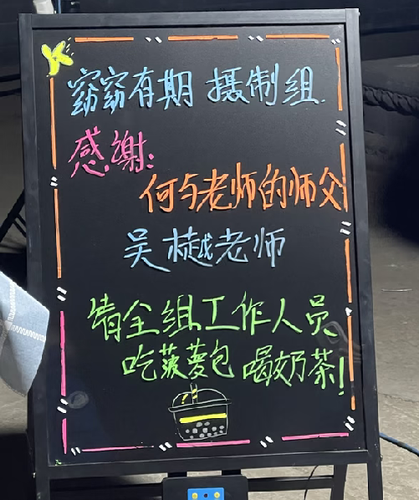 窈窈有期 摄制组
感谢:
何与老师的师父
吴樾老师
请全组工作人员
吃菠萝包 喝奶茶!